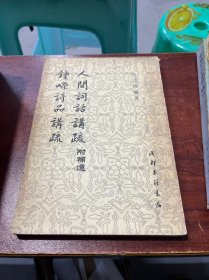 人間詞話講疏 附補遺
鍾嶸詩品講疏
成都古籍書店